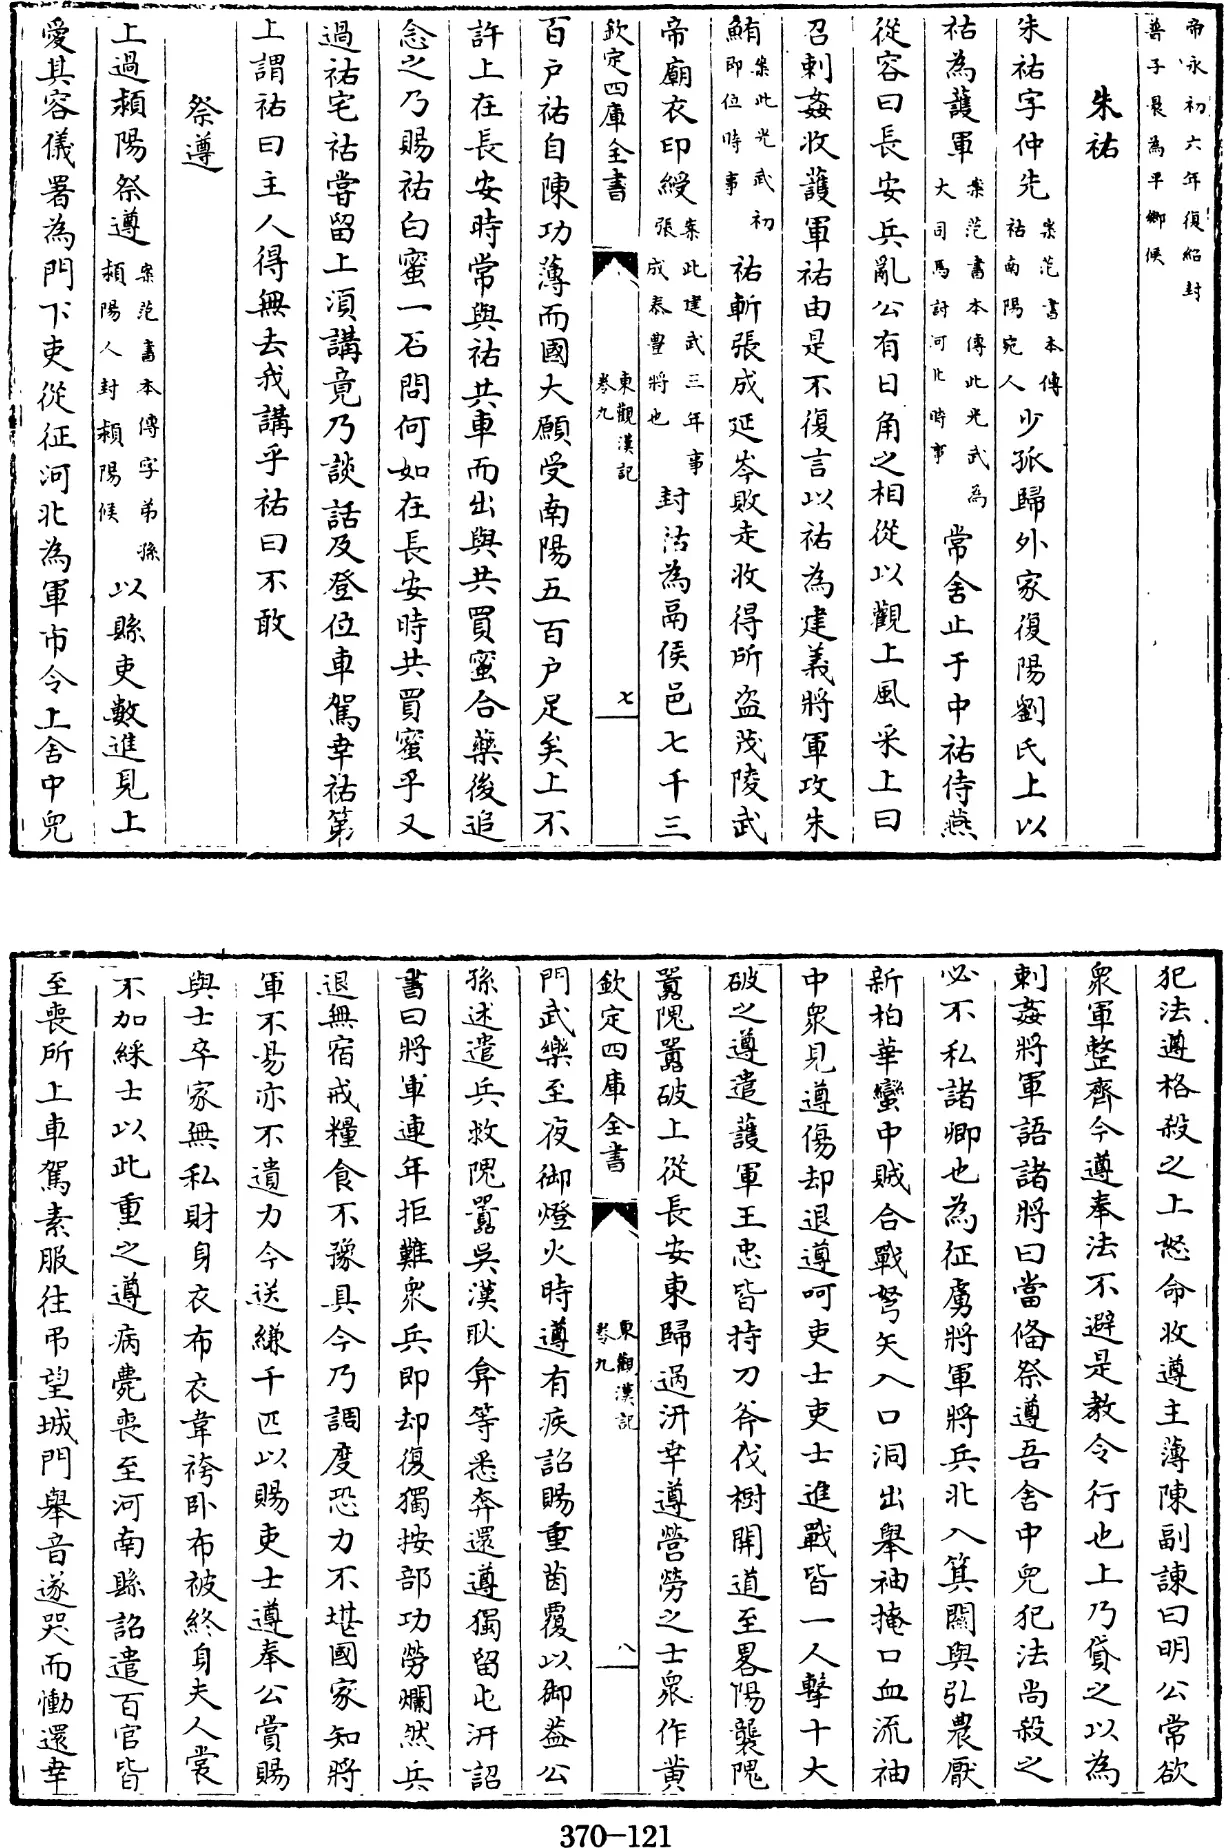 帝永初六年復紹封
普子晨為平鄉侯
朱祜
朱祜字仲先案范書本傳祜南陽宛人少孤歸外家復陽劉氏上以
祜為護軍案范書本傳此光武為大司馬討河北時事常舍止于中祜侍燕
從容曰長安兵亂公有日角之相從以觀上風采上曰
召刺姦收護軍祜由是不復言以祜為建義將軍攻朱
鮪案此光武初即位時事祜斬張成延岑敗走收得所盜茂陵武
帝廟衣印綬案此建武三年事張成秦豊將也封祜為鬲侯邑七千三
欽定四庫全書
東觀漢記
卷九
七
百戶祜自陳功薄而國大願受南陽五百戶足矣上不
許上在長安時常與祜共車而出與共買蜜合藥後追
念之乃賜祜白蜜一石問何如在長安時共買蜜乎又
過祜宅祜嘗留上須講竟乃談話及登位車駕幸祜第
上謂祜曰主人得無去我講乎祜曰不敢
祭遵
上過潁陽祭遵案范書本傳字弟孫潁陽人封潁陽侯以縣吏數進見上
愛其容儀署為門下吏從征河北為軍市令上舍中兒
犯法遵格殺之上怒命收遵主薄陳副諫曰明公常欲
衆軍整齊今遵奉法不避是教令行也上乃貸之以為
刺姦將軍語諸將曰當備祭遵吾舍中兒犯法尚殺之
必不私諸卿也為征虜將軍將兵北入箕關與弘農厭
新柏華蠻中賊合戰弩矢入口洞出舉袖掩口血流袖
中衆見遵傷却退遵呵吏士吏士進戰皆一人擊十大
破之遵遣護軍王忠皆持刀斧伐樹開道至畧陽襲隗
囂隗囂破上從長安東歸過汧幸遵營勞之士衆作黃
欽定四庫全書
東觀漢記
卷九
八
門武樂至夜御燈火時遵有疾詔賜重茵覆以御葢公
孫述遣兵救隗囂吳漢耿弇等悉奔還遵獨留屯汧詔
書曰將軍連年拒難衆兵即却復獨按部功勞爛然兵
退無宿戒糧食不豫具今乃調度恐力不堪國家知將
軍不易亦不遺力今送縑千匹以賜吏士遵奉公賞賜
與士卒家無私財身衣布衣韋袴卧布被終身夫人裳
不加綵士以此重之遵病薨喪至河南縣詔遣百官皆
至喪所上車駕素服往弔望城門舉音遂哭而慟還幸
370-121